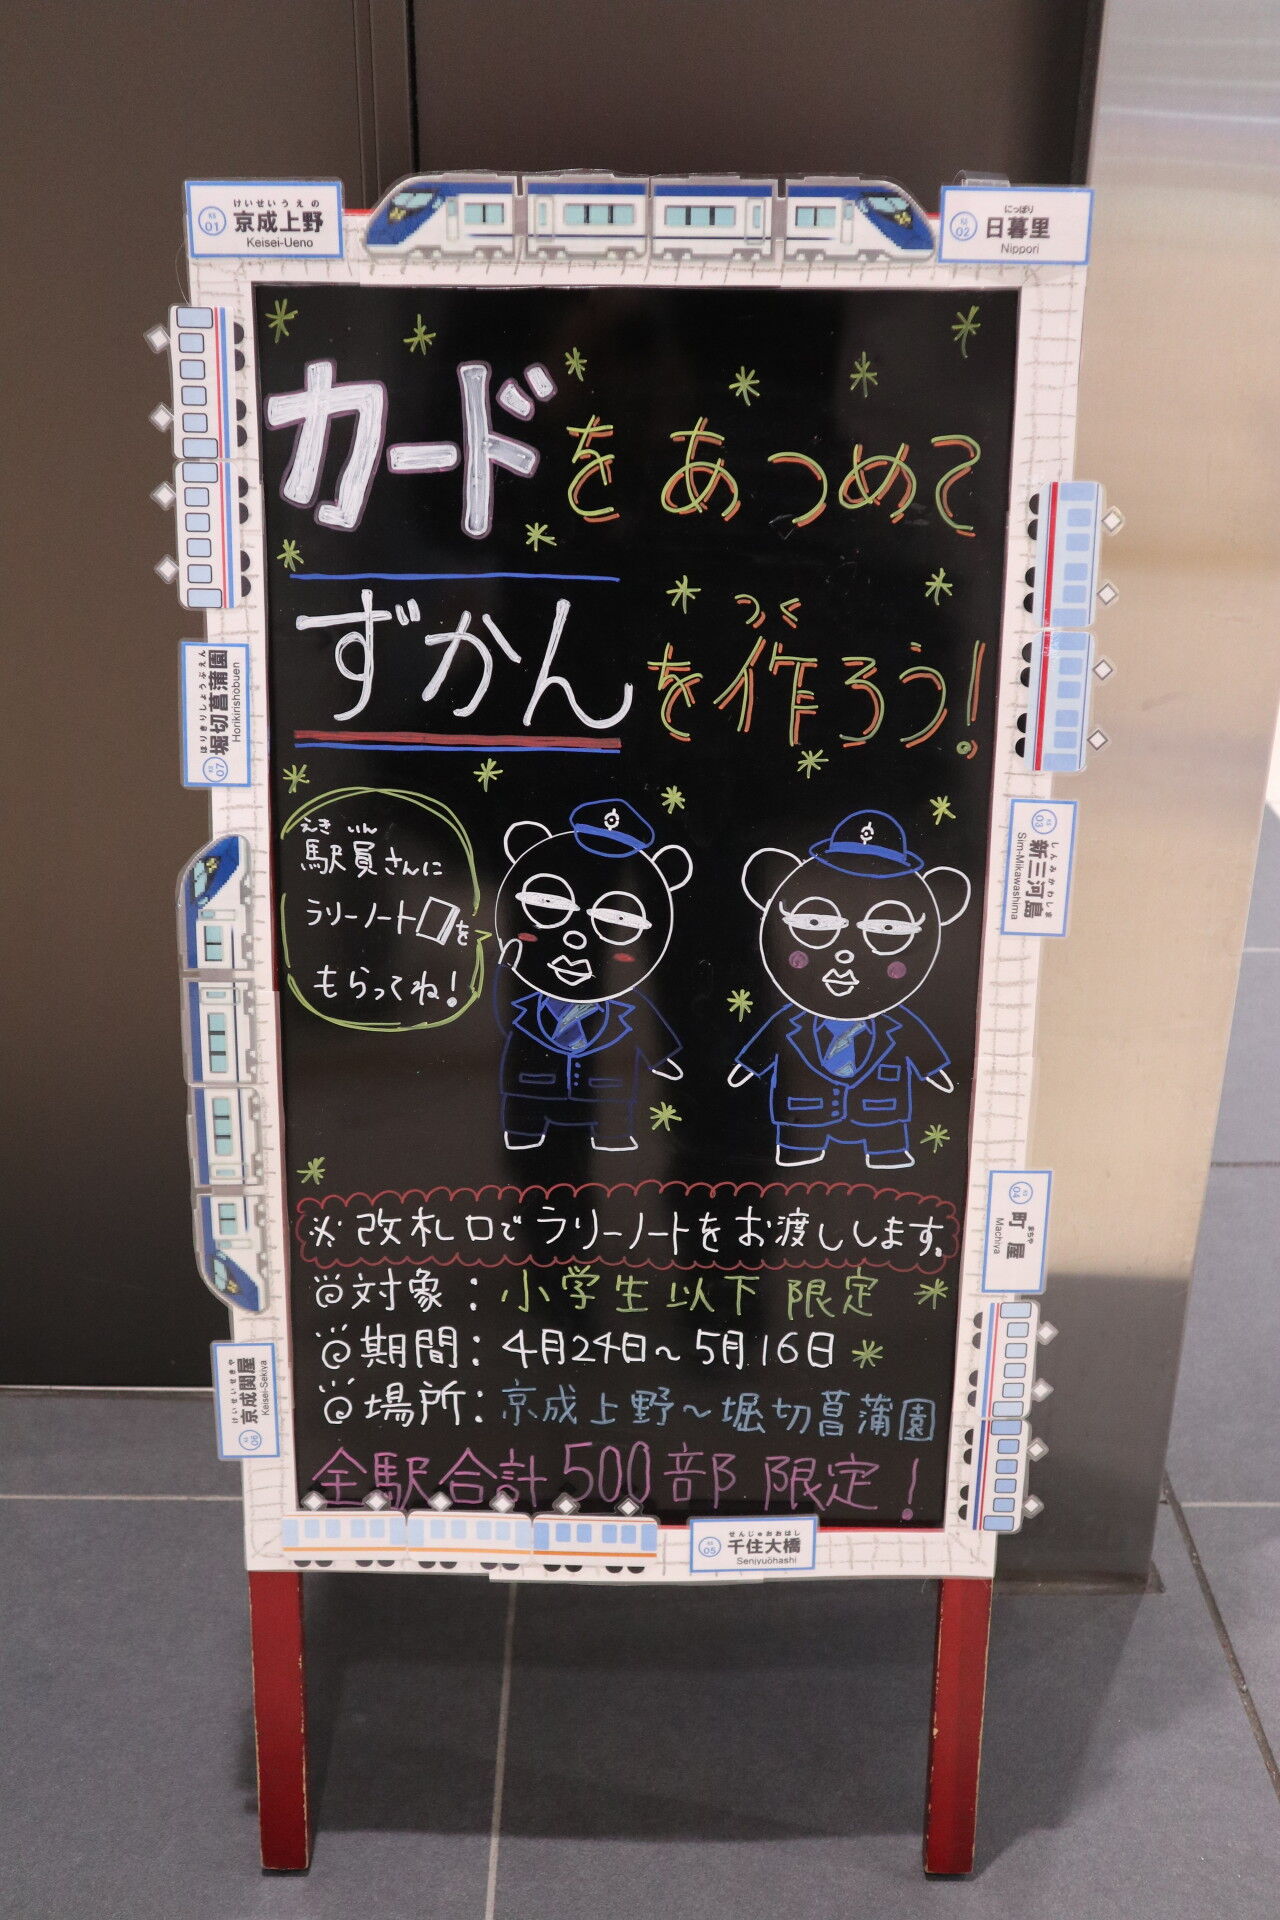 けいせいうえの
KS 01 京成上野
Keisei-Ueno
にっぽり
KS 02 日暮里
Nippori
カードをあつめて
つく
ずかんを作ろう!
えきいん
駅員さんに
ラリーノートを
もらってね!
※改札口でラリーノートをお渡しします。
対象:小学生以下限定
期間:4月24日~5月16日
場所:京成上野~堀切菖蒲園
全駅合計500部限定!
しんみかわしま
KS 03 新三河島
Shim-Mikawashima
まちや
KS 04 町屋
Machiya
せんじゅおおはし
KS 05 千住大橋
Senjuōhashi
けいせいせきや
KS 06 京成関屋
Keisei-Sekiya
ほりきりしょうぶえん
KS 07 堀切菖蒲園
Horikirishobuen